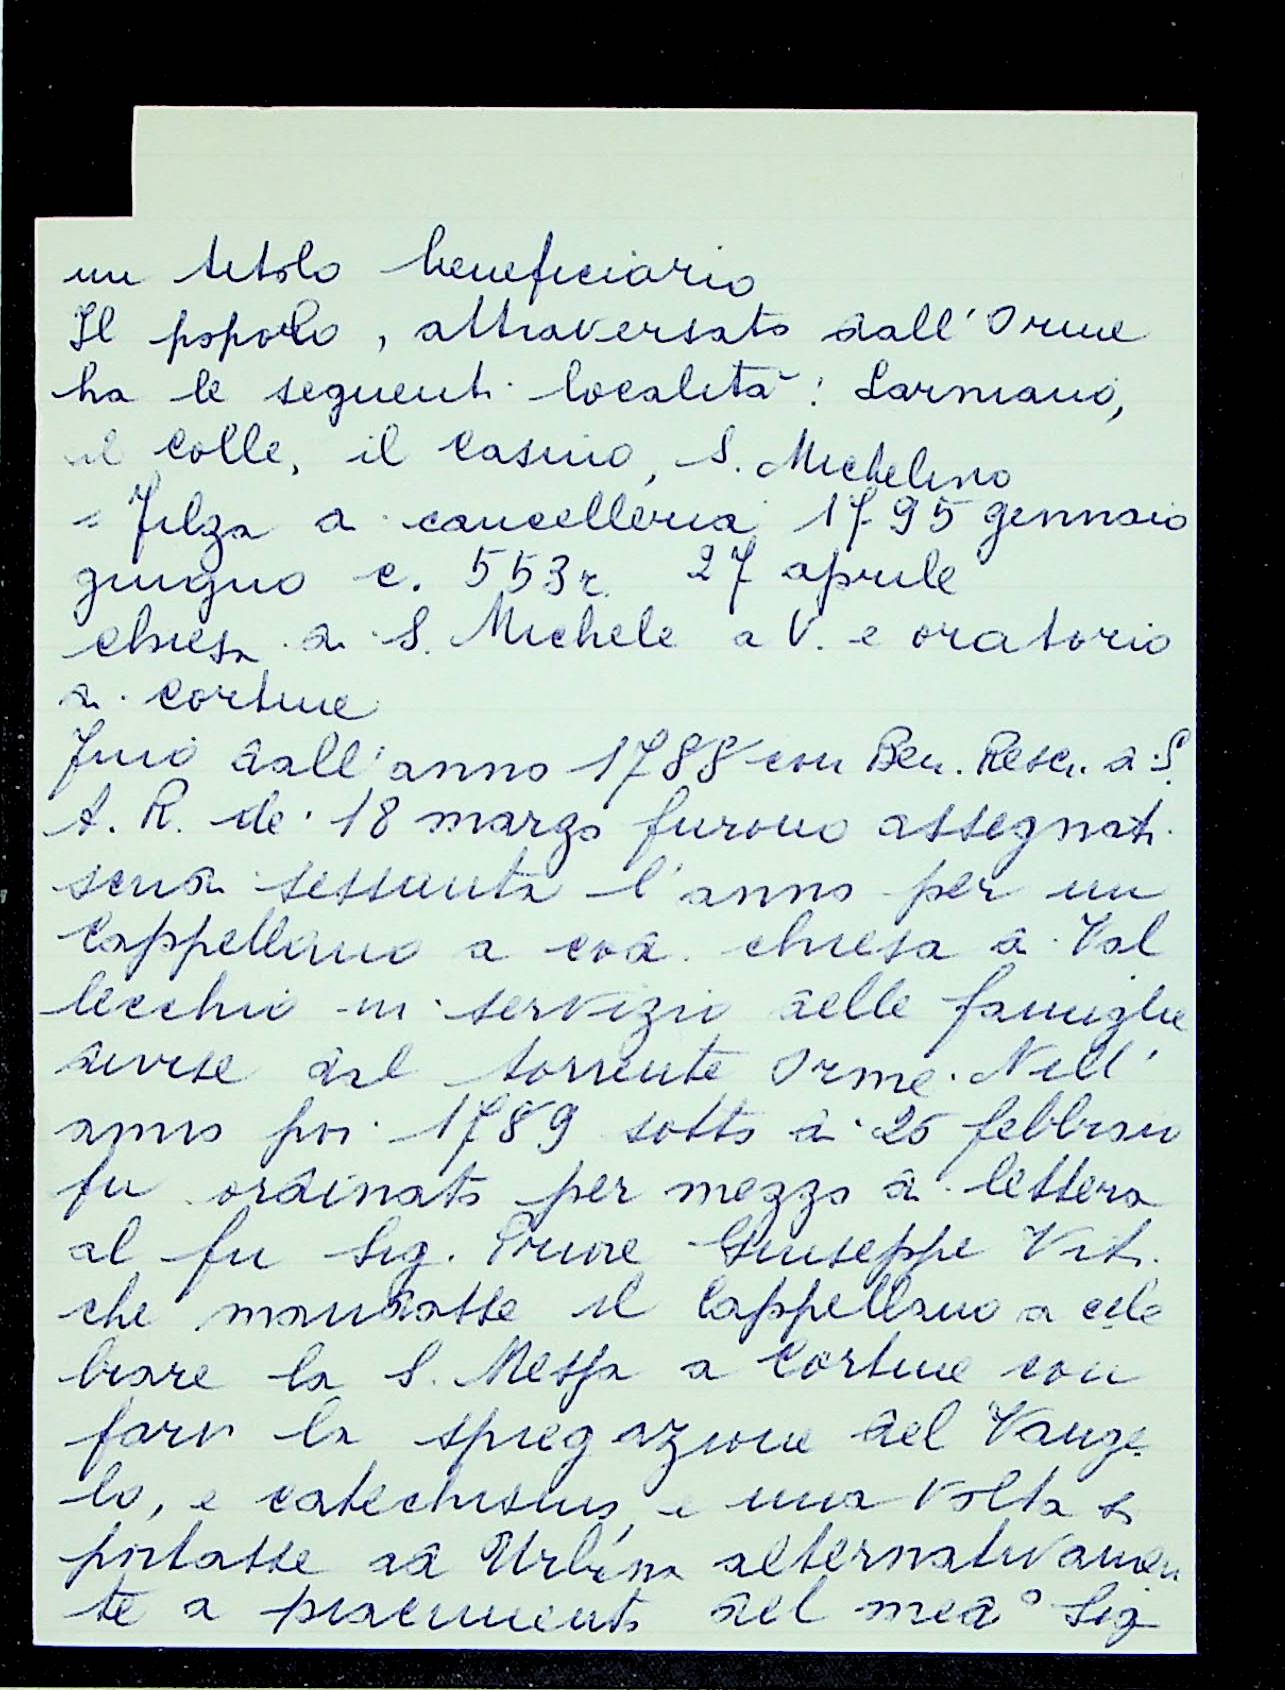 un titolo beneficiario
Il popolo, attraversato dall'Orme
ha le seguenti località: Sarmiano,
il Colle, il Casino, S. Michelino
Filza di cancelleria 1795 gennaio
giugno c. 553r 27 aprile
chiesa di S. Michele a V. e oratorio
di Cortine
Fino dall'anno 1788 con Ben. Rescr. di S.
A. R. de' 18 marzo furono assegnati
scudi sessanta l'anno per un
Cappellano a cod. chiesa di Val
lecchio in servizio delle famiglie
divise dal torrente Orme. Nell'
anno poi 1789 sotto dì 26 febbraio
fu ordinato per mezzo di lettera
al fu Sig. Priore Giuseppe Viti
che mandasse il Cappellano a cele
brare la S. Messa a Cortine con
farvi la spiegazione del Vange
lo, e catechismo, e una volta si
portasse ad Urbina alternativamen
te a piacimento del med° Sig